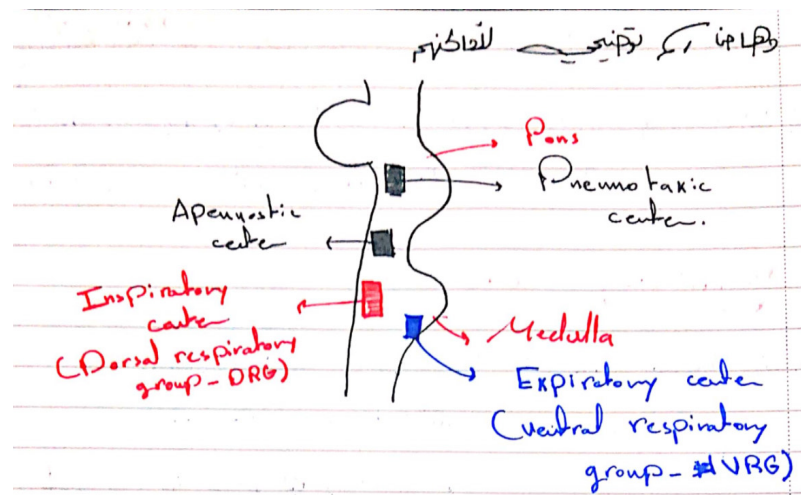 رسم توضيحي لأماكنهم
Pons
Pneumotaxic
center.
Apenustic
center
Inspiratory
center
(Dorsal respiratory
group - DRG)
Medulla
Expiratory center
(ventral respiratory
group - VRG)